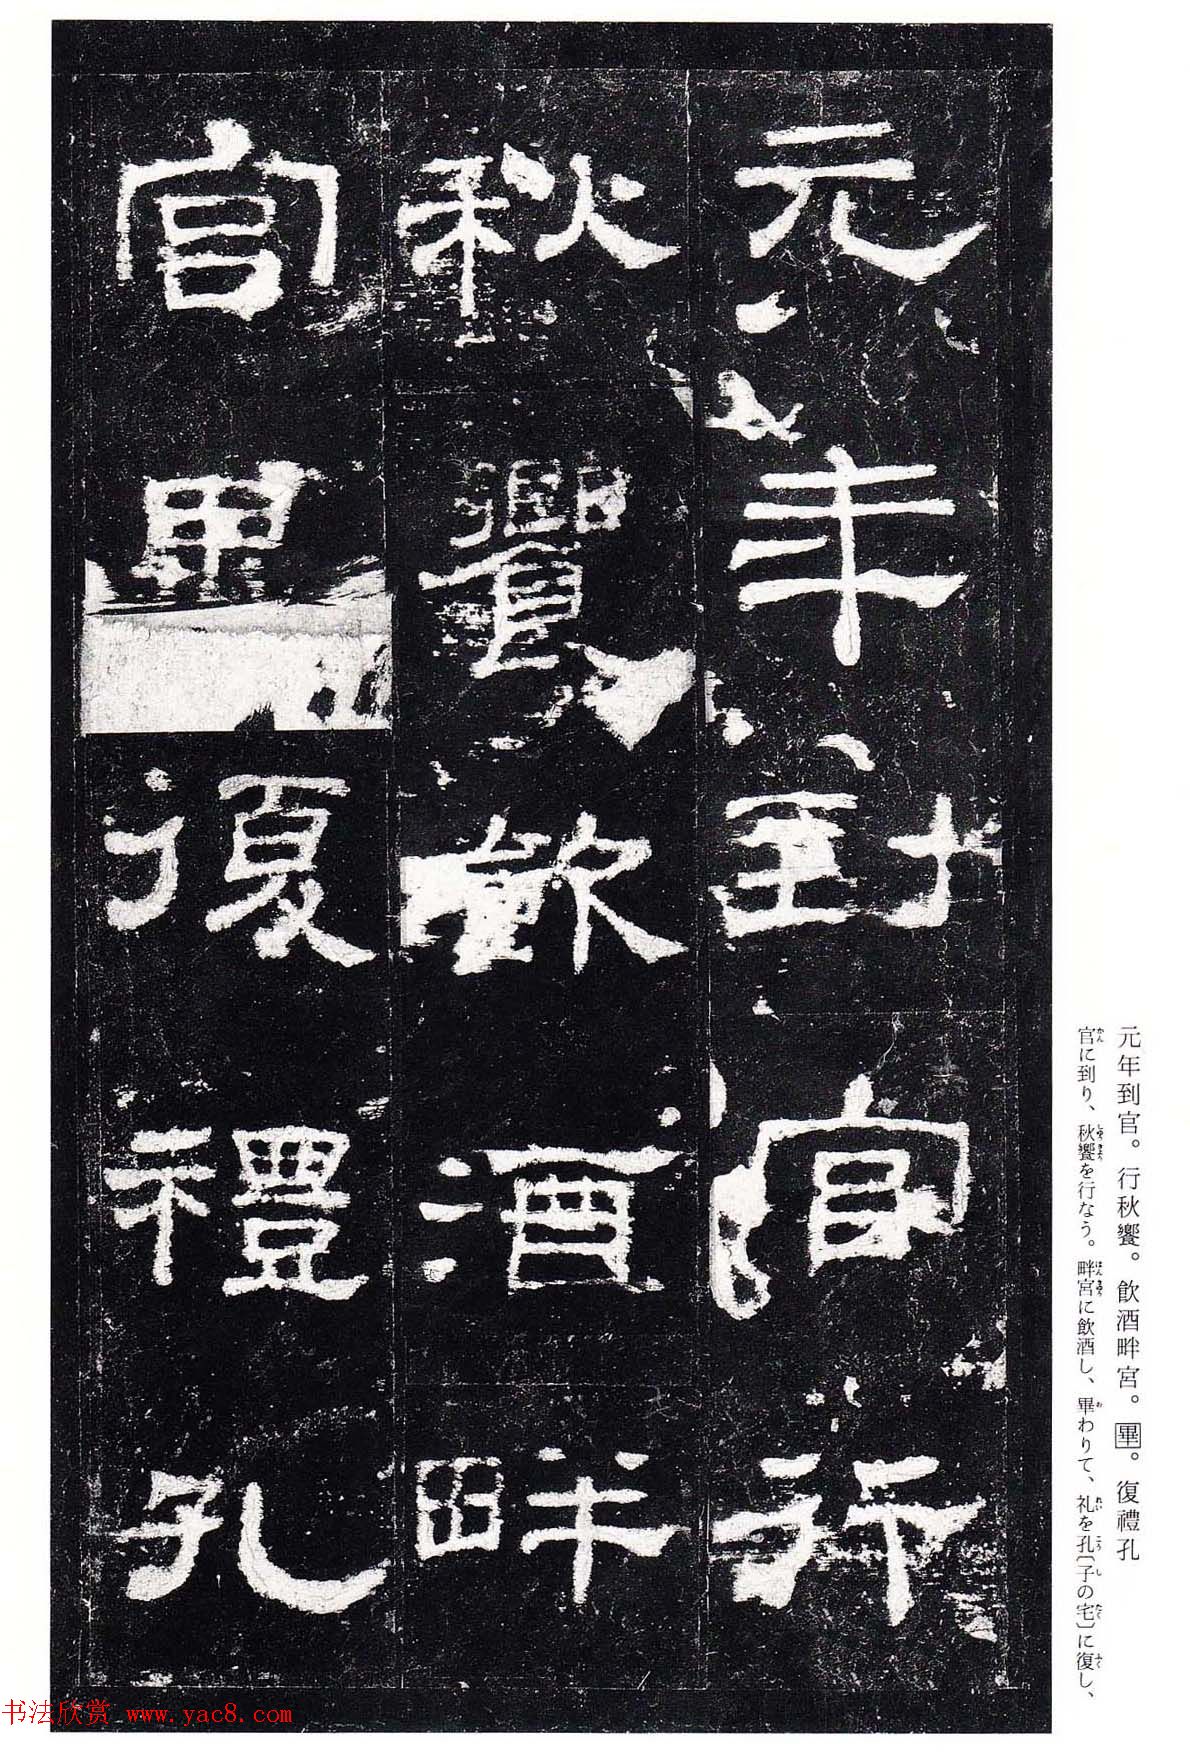 元年到官行
秋饗飲酒畔
宮畢復禮孔
元年到官。行秋饗。飲酒畔宮。畢。復禮孔
官に到り、秋饗を行なう。畔宮に飲酒し、畢わりて、礼を孔〔子の宅〕に復し、
书法欣赏 www.yac8.com